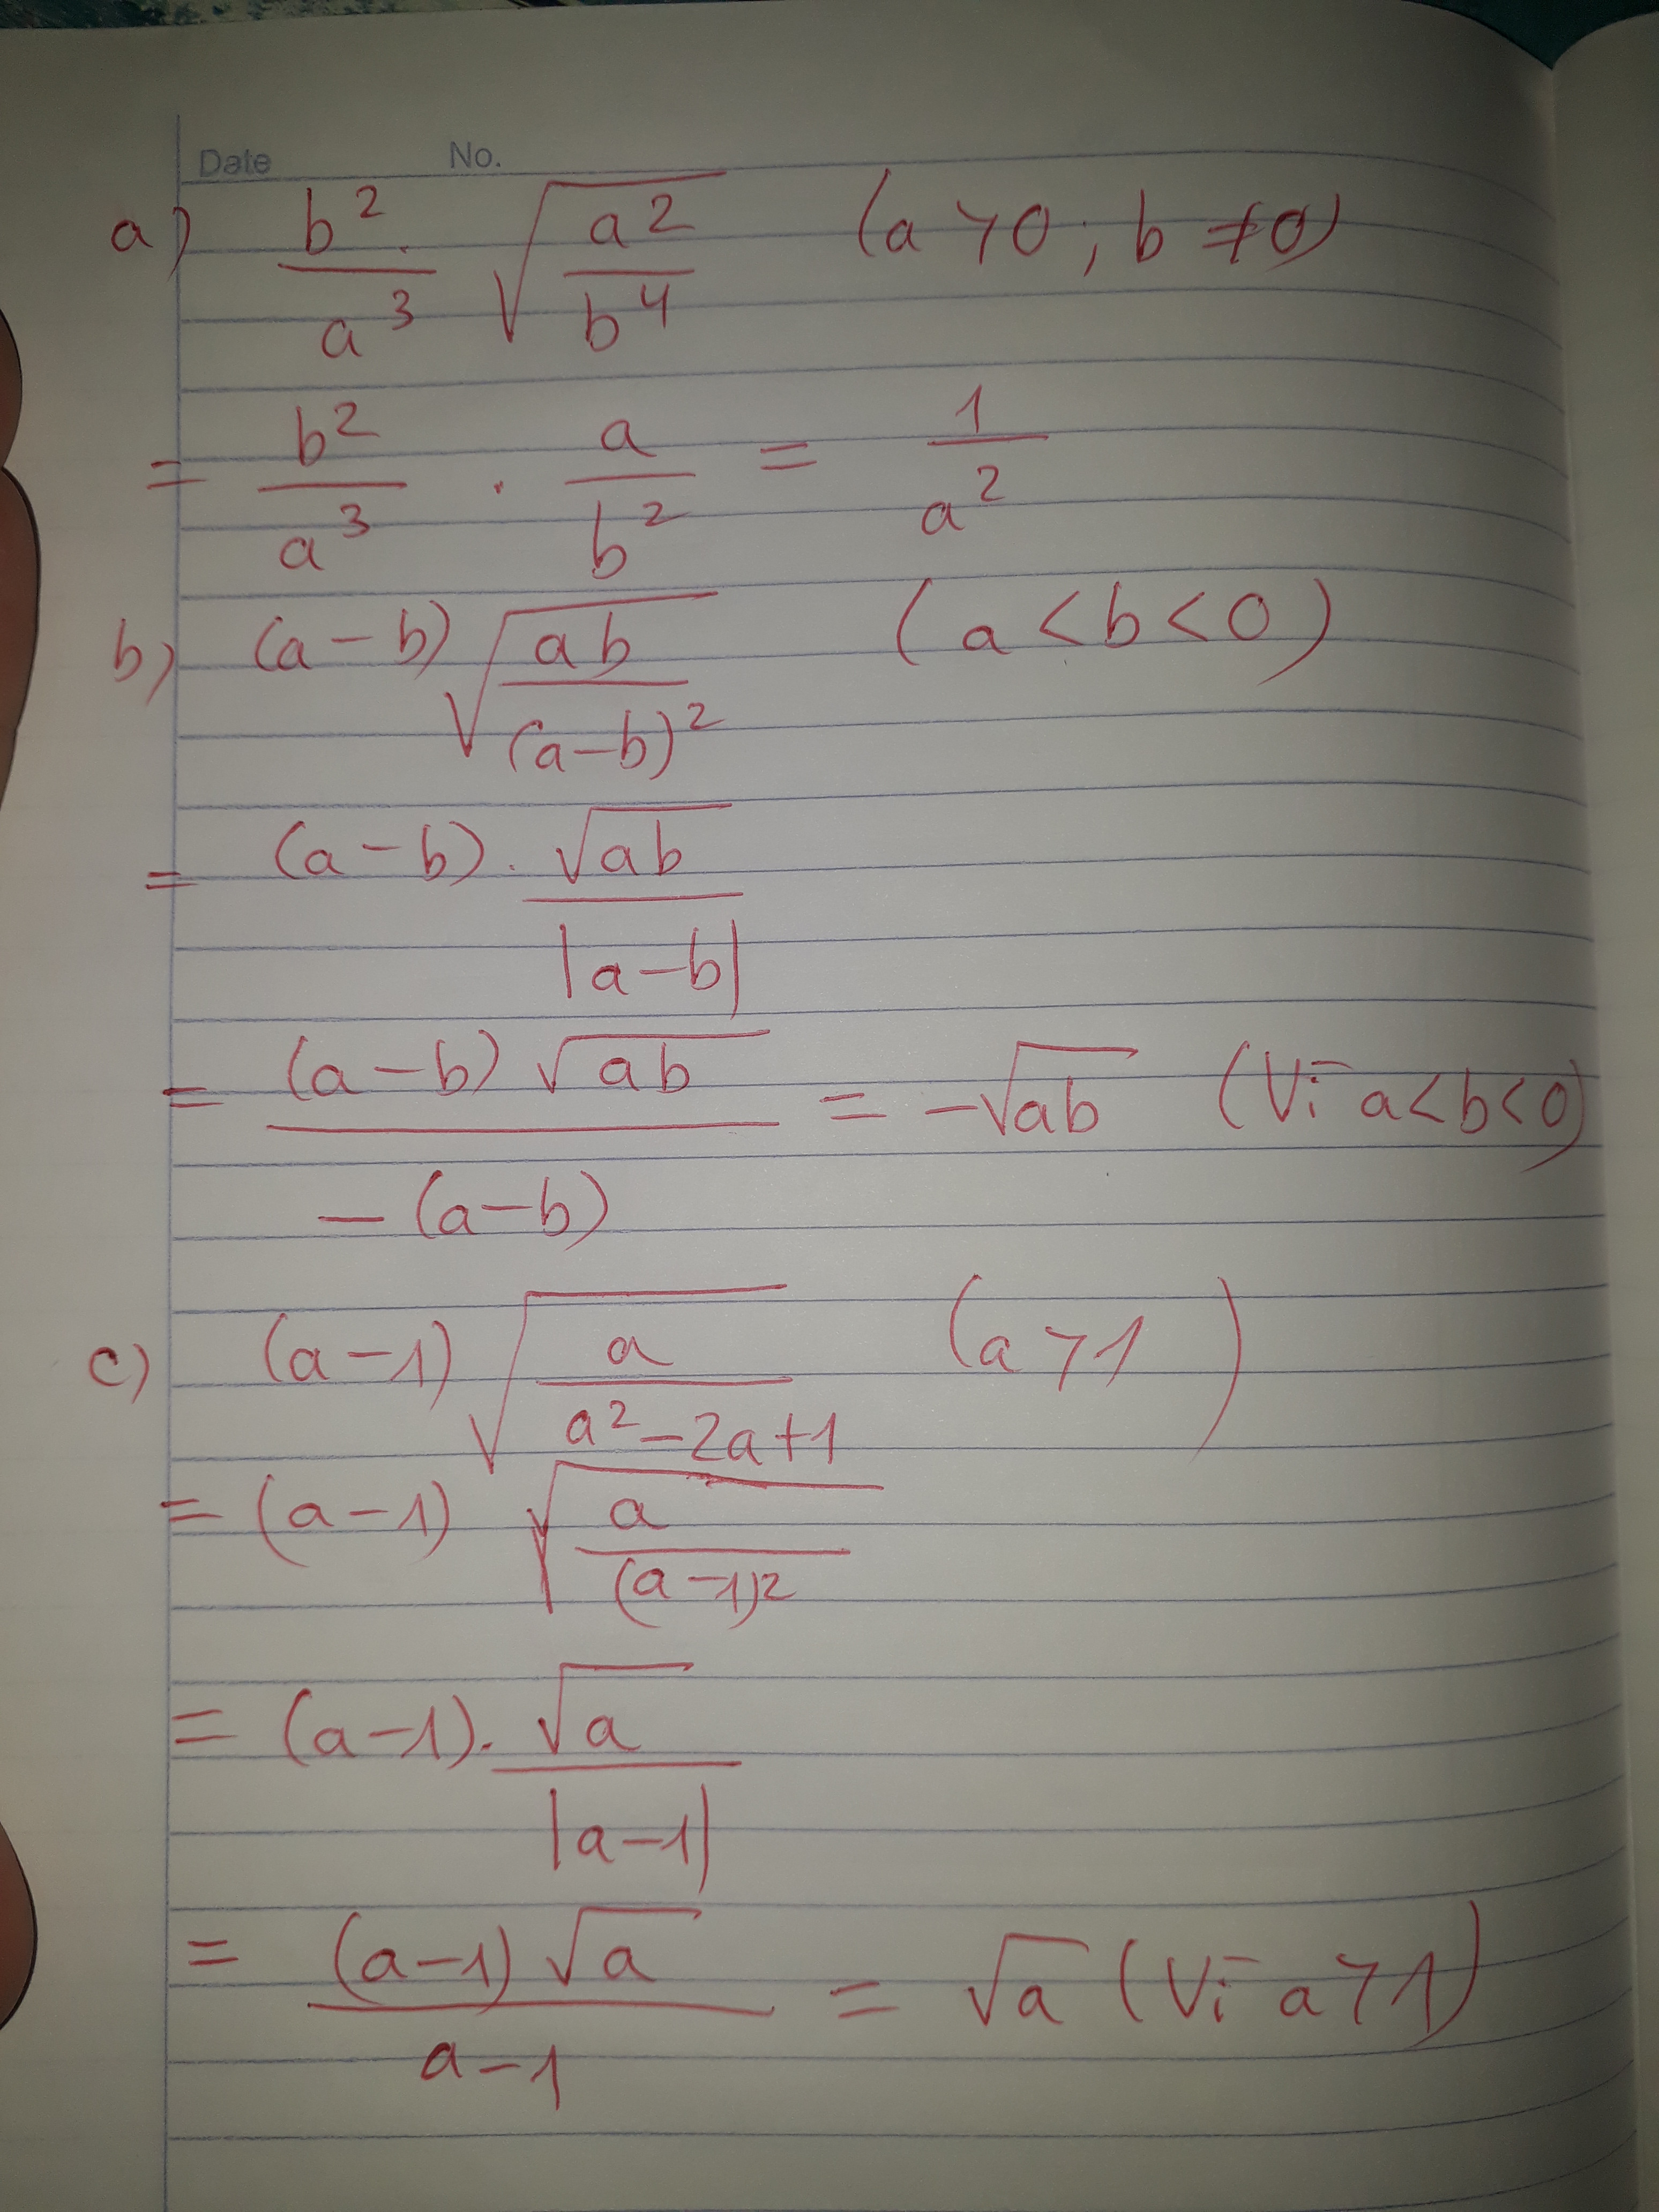 Date No.
a) b²/a³ . √(a²/b⁴) (a>0; b≠0)
= b²/a³ . a/b² = 1/a²
b) (a-b)√(ab/(a-b)²) (a<b<0)
= (a-b) . √ab/|a-b|
= (a-b)√ab/-(a-b) = -√ab (Vì a<b<0)
c) (a-1)√(a/(a²-2a+1)) (a>1)
= (a-1) √(a/(a-1)²)
= (a-1) . √a/|a-1|
= (a-1)√a/(a-1) = √a (Vì a>1)